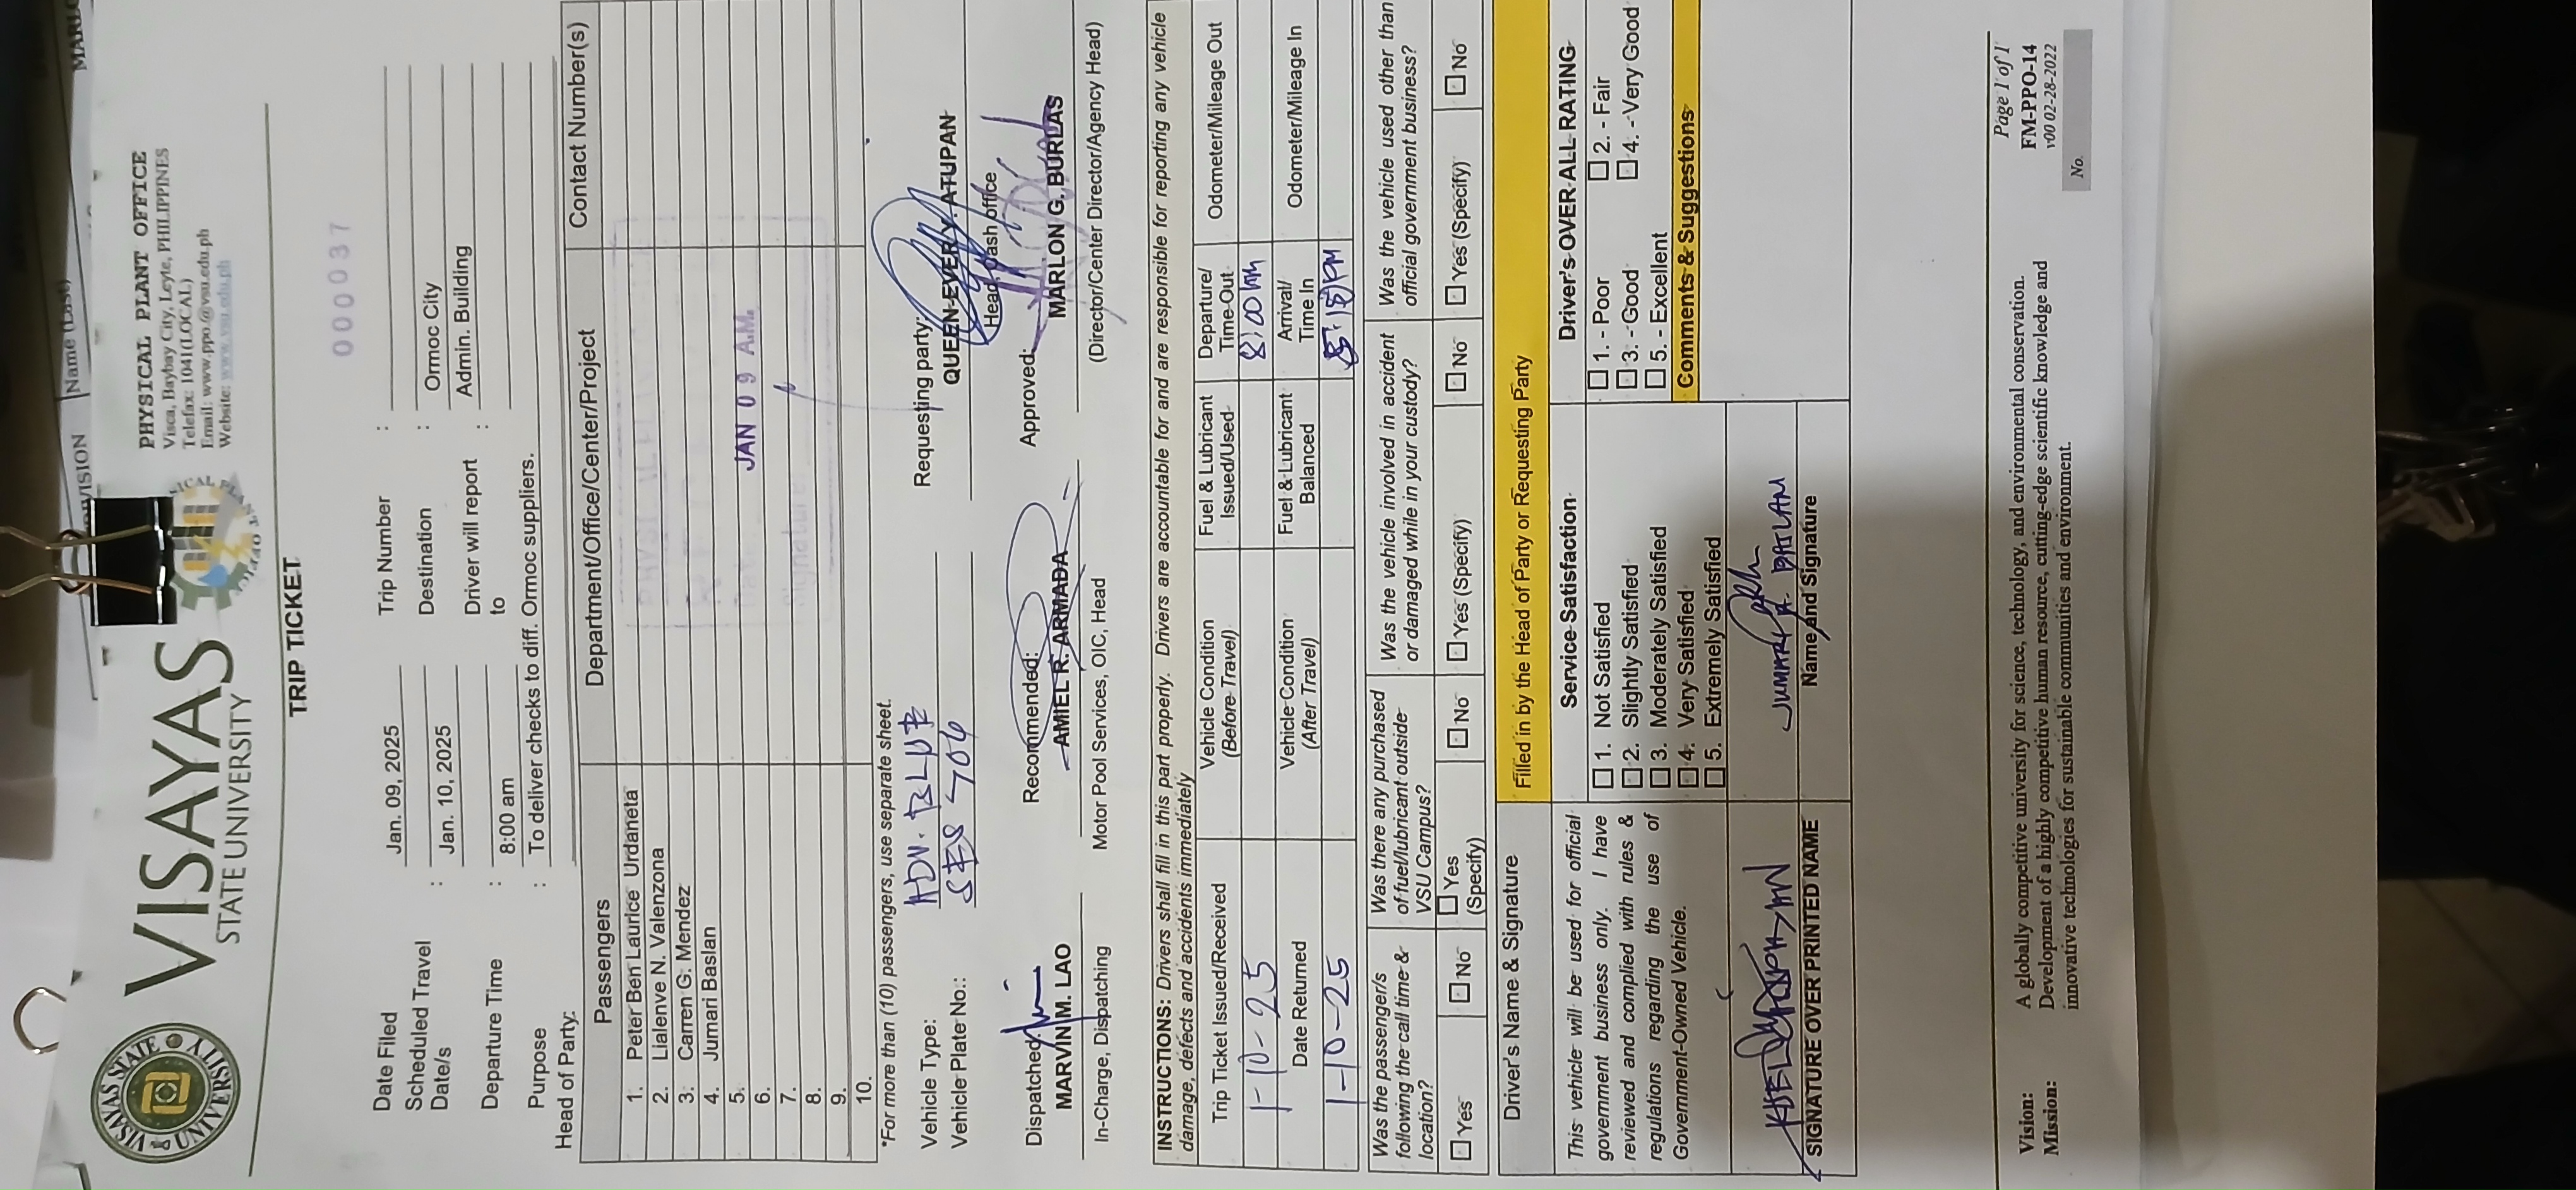 Name (Last)
VISION
MARLO
VISAYAS STATE UNIVERSITY
VISAYAS
STATE UNIVERSITY
PHYSICAL PLANT OFFICE
Visca, Baybay City, Leyte, PHILIPPINES
Telefax: 1041(LOCAL)
Email: www.ppo.@vsu.edu.ph
Website: www.vsu.edu.ph
TRIP TICKET
000037
Date Filed Jan. 09, 2025 Trip Number :
Scheduled Travel Date/s : Jan. 10, 2025 Destination : Ormoc City
Departure Time : 8:00 am Driver will report to : Admin. Building
Purpose : To deliver checks to diff. Ormoc suppliers.
Head of Party:
Passengers Department/Office/Center/Project Contact Number(s)
1. Peter Ben Laurice Urdaneta
2. Lialenve N. Valenzona
3. Carren G. Mendez
4. Jumari Baslan
5.
6.
7.
8.
9.
10.
JAN 09 A.M.
*For more than (10) passengers, use separate sheet.
Vehicle Type: ADV. BLUE
Vehicle Plate No.: SFS 706
Requesting party:
QUEEN-EVER Y. ATUPAN
Head, Cash office
Dispatched:
MARVIN M. LAO
In-Charge, Dispatching
Recommended:
AMIEL R. ARMADA
Motor Pool Services, OIC, Head
Approved:
MARLON G. BURLAS
(Director/Center Director/Agency Head)
INSTRUCTIONS: Drivers shall fill in this part properly. Drivers are accountable for and are responsible for reporting any vehicle
damage, defects and accidents immediately
Trip Ticket Issued/Received Vehicle Condition (Before Travel) Fuel & Lubricant Issued/Used Departure/ Time Out Odometer/Mileage Out
1-10-25 8:00 AM
Date Returned Vehicle Condition (After Travel) Fuel & Lubricant Balanced Arrival/ Time In Odometer/Mileage In
1-10-25 5:15 PM
Was the passenger/s following the call time & location?
☐ Yes ☐ No
Was there any purchased of fuel/lubricant outside VSU Campus?
☐ Yes (Specify) ☐ No
Was the vehicle involved in accident or damaged while in your custody?
☐ Yes (Specify) ☐ No
Was the vehicle used other than official government business?
☐ Yes (Specify) ☐ No
Driver's Name & Signature
This vehicle will be used for official
government business only. I have
reviewed and complied with rules &
regulations regarding the use of
Government-Owned Vehicle.
SIGNATURE OVER PRINTED NAME
Filled in by the Head of Party or Requesting Party
Service Satisfaction
☐ 1. Not Satisfied
☐ 2. Slightly Satisfied
☐ 3. Moderately Satisfied
☐ 4. Very Satisfied
☐ 5. Extremely Satisfied
Name and Signature
Driver's OVER ALL RATING
☐ 1. - Poor ☐ 2. - Fair
☐ 3. - Good ☐ 4. - Very Good
☐ 5. - Excellent
Comments & Suggestions
Vision: A globally competitive university for science, technology, and environmental conservation.
Mission: Development of a highly competitive human resource, cutting-edge scientific knowledge and
innovative technologies for sustainable communities and environment.
Page 1 of 1
FM-PPO-14
v00 02-28-2022
No.